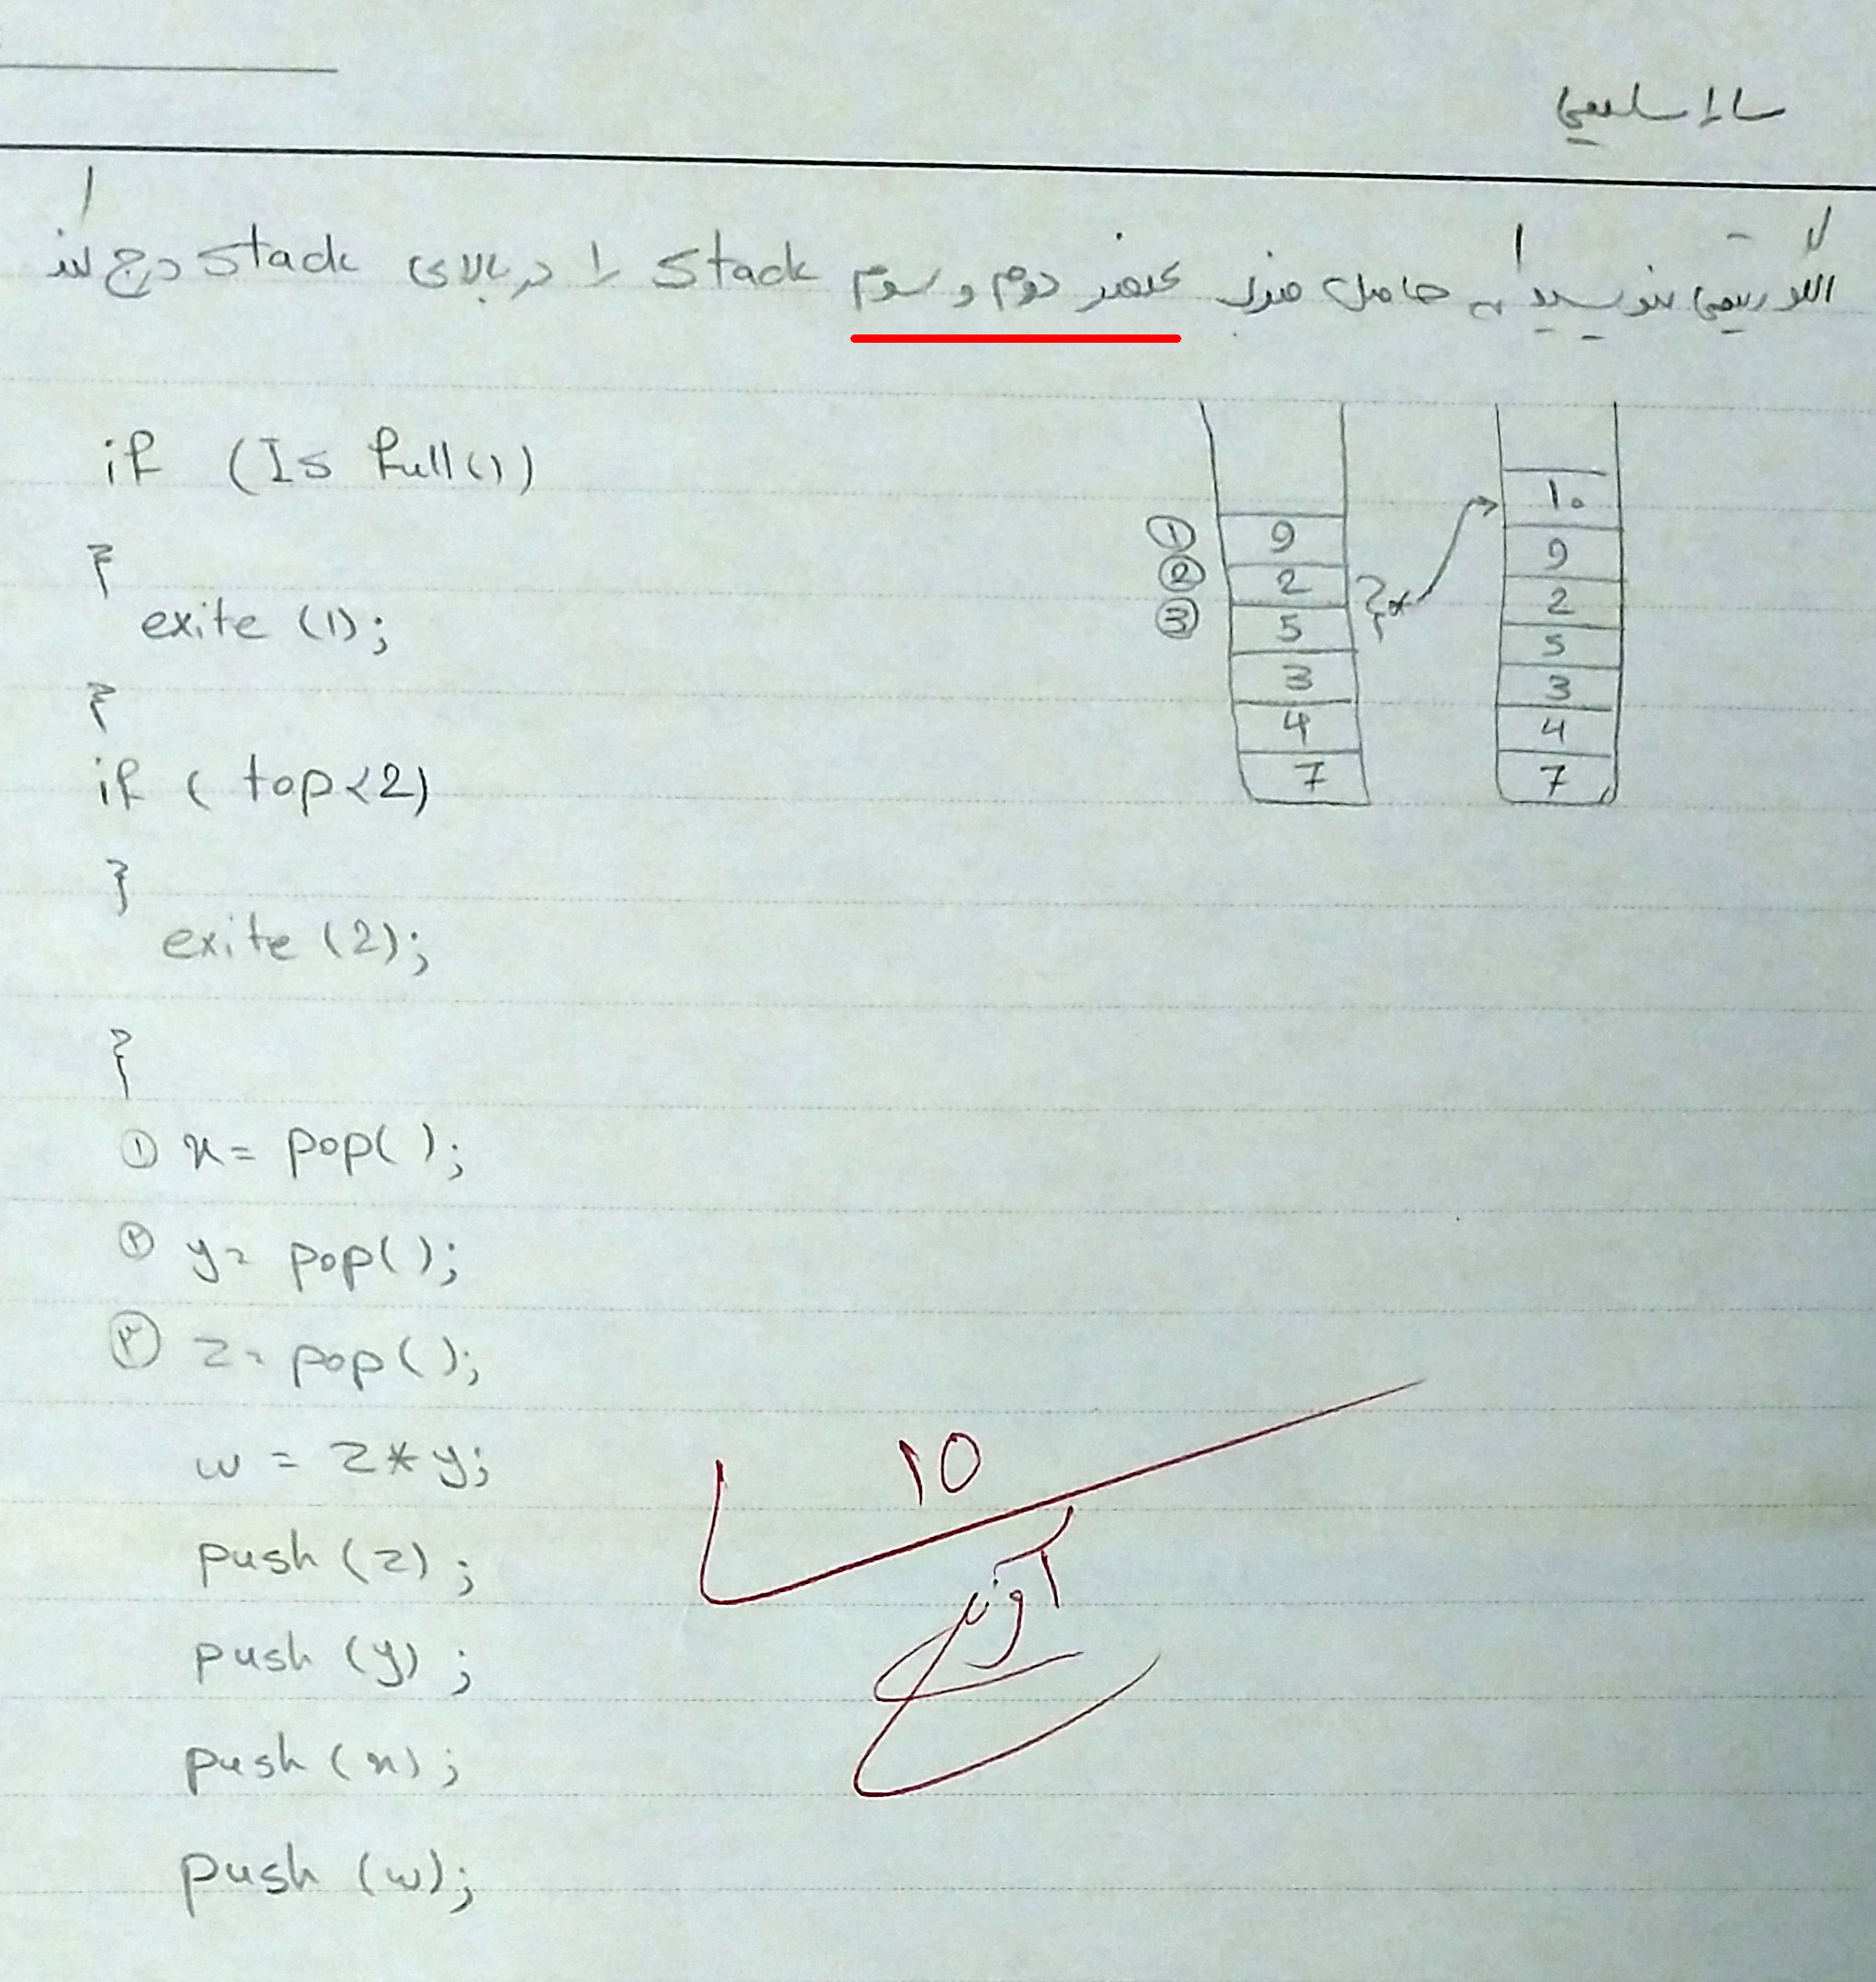 الگوریتمی بنویسید که حاصل ضرب عنصر دوم و سوم stack را در بالای stack درج کند
if (Is full())
{
exite (1);
}
if ( top<2)
{
exite (2);
}
① x= pop( );
② y= pop( );
③ z= pop( );
w = z*y;
push (z) ;
push (y) ;
push (x) ;
push (w);
① 9
② 2
③ 5
3
4
7
}*
10
9
2
5
3
4
7
10